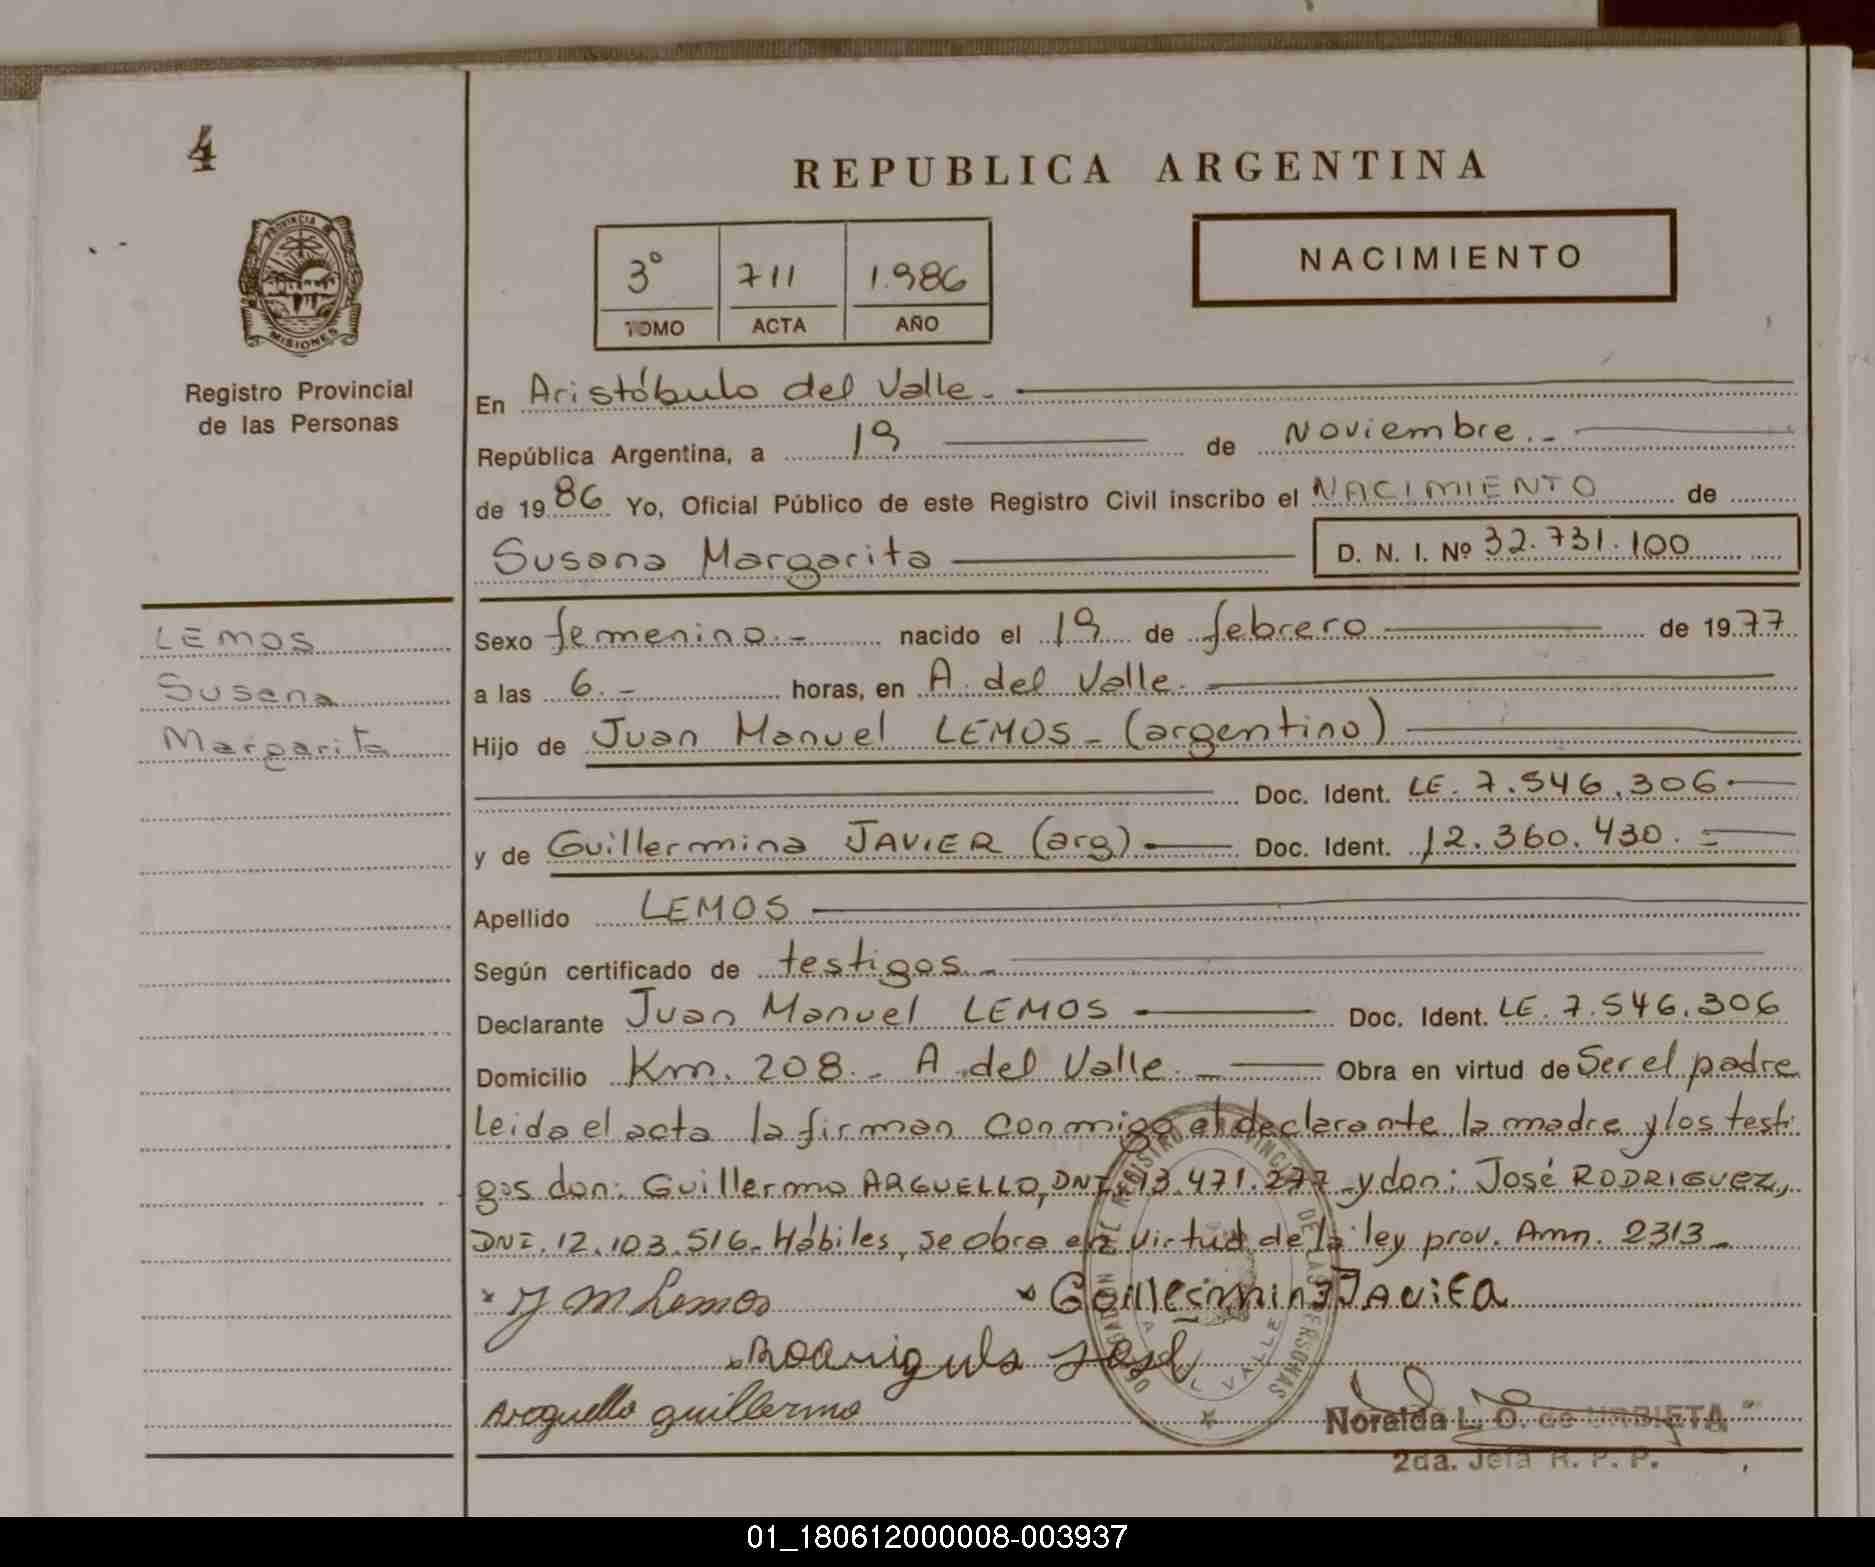 4
REPUBLICA ARGENTINA
PROVINCIA DE
MISIONES
3° 711 1.986
TOMO ACTA AÑO
NACIMIENTO
Registro Provincial
de las Personas
En Aristóbulo del Valle.-
República Argentina, a 19 de Noviembre.-
de 1986 Yo, Oficial Público de este Registro Civil inscribo el NACIMIENTO de
Susana Margarita D. N. I. Nº 32.731.100
LEMOS
Susana
Margarita
Sexo femenino.- nacido el 19 de febrero de 1977
a las 6.- horas, en A. del Valle.
Hijo de Juan Manuel LEMOS - (argentino)
Doc. Ident. LE. 7.546.306.
y de Guillermina JAVIER (arg) Doc. Ident. 12.360.430.=
Apellido LEMOS
Según certificado de testigos.-
Declarante Juan Manuel LEMOS Doc. Ident. LE. 7.546.306
Domicilio Km. 208.- A. del Valle.- Obra en virtud de Ser el padre
leida el acta la firman conmigo el declarante la madre y los testi
gos don: Guillermo ARGUELLO, DNI. 13.471.277 - y don: José RODRIGUEZ,
DNI. 12.103.516. Hábiles, se obra en virtud de la ley prov. Amn. 2313-
J M Lemos Guillermina JAviEa
José
Arguello guillermo
DELEGACION DEL REGISTRO PROVINCIAL DE LAS PERSONAS
A. DEL VALLE
Noralda L. O. de URBIETA
2da. Jefa R. P. P.
01_180612000008-003937